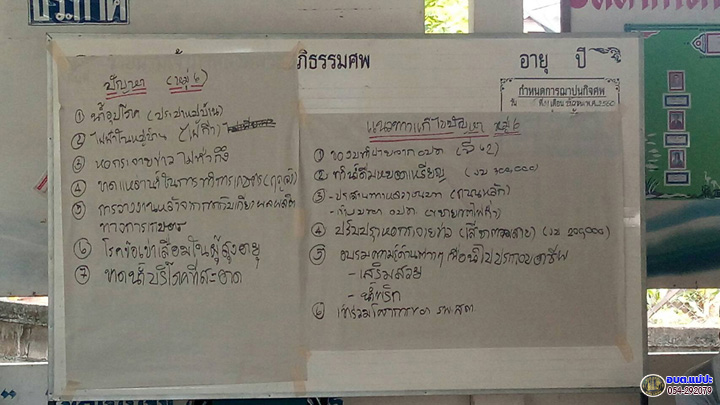 ประกาศ
ภิธรรมศพ
อายุ ปี
กำหนดการฌาปนกิจศพ
ปัญหา (หมู่ 6)
① น้ำอุปโภค (ประปาหมู่บ้าน)
② ไฟฟ้าในหมู่บ้าน (ไฟกิ่ง)
③ หอกระจายข่าว ไม่ทั่วถึง
④ ขาดแหล่งน้ำในการทำการเกษตร (ฤดูแล้ง)
⑤ การว่างงานหลังจากการเก็บเกี่ยวผลผลิต
ทางการเกษตร
⑥ โรคข้อเข่าเสื่อมในผู้สูงอายุ
⑦ ขาดน้ำบริโภคที่สะอาด
แนวทางแก้ไขปัญหา หมู่ 6
① ของบ อบต. (ปี 62)
② ทำน้ำดื่มหยอดเหรียญ (งบ 300,000)
③ - ประสาน (ถนนหลัก)
- อบต. (ขยายเขตไฟฟ้า)
④ ปรับปรุงหอกระจายข่าว (เสียงตามสาย) (งบ 200,000)
⑤ อบรมความรู้ด้านต่างๆ เพื่อนำไปประกอบอาชีพ
- เสริมสวย
- น้ำพริก
⑥ เข้าร่วมโครงการของ รพ.สต.
อบต.แม่ปะ
054-292079